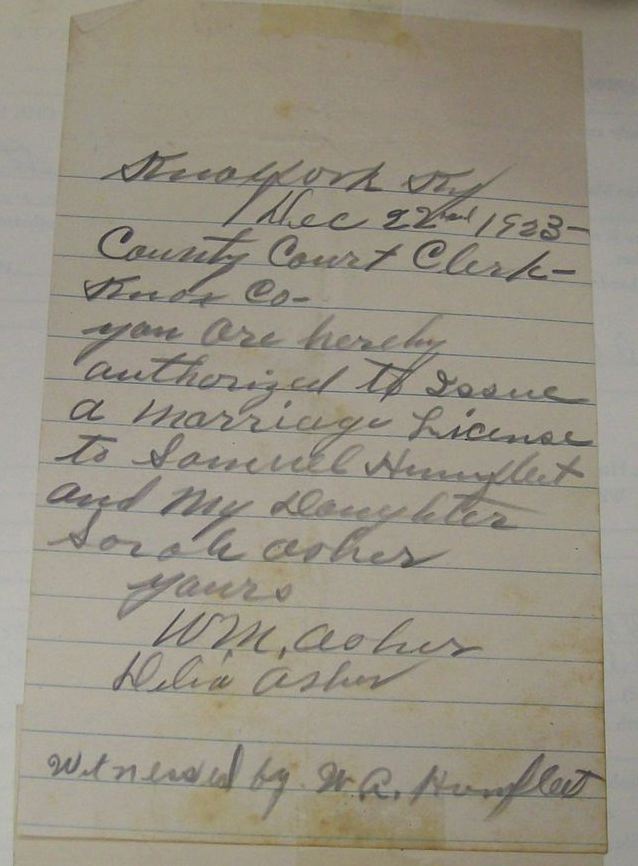 Knoxfork Ky
Dec 22nd 1923-
County Court Clerk-
Knox Co-
you are hereby
authorized to Issue
a Marriage License
to Samuel Humfleet
and My Daughter
Sarah Asher
yours
W.M. Asher
Delia Asher
Witnessed by W. R. Humfleet